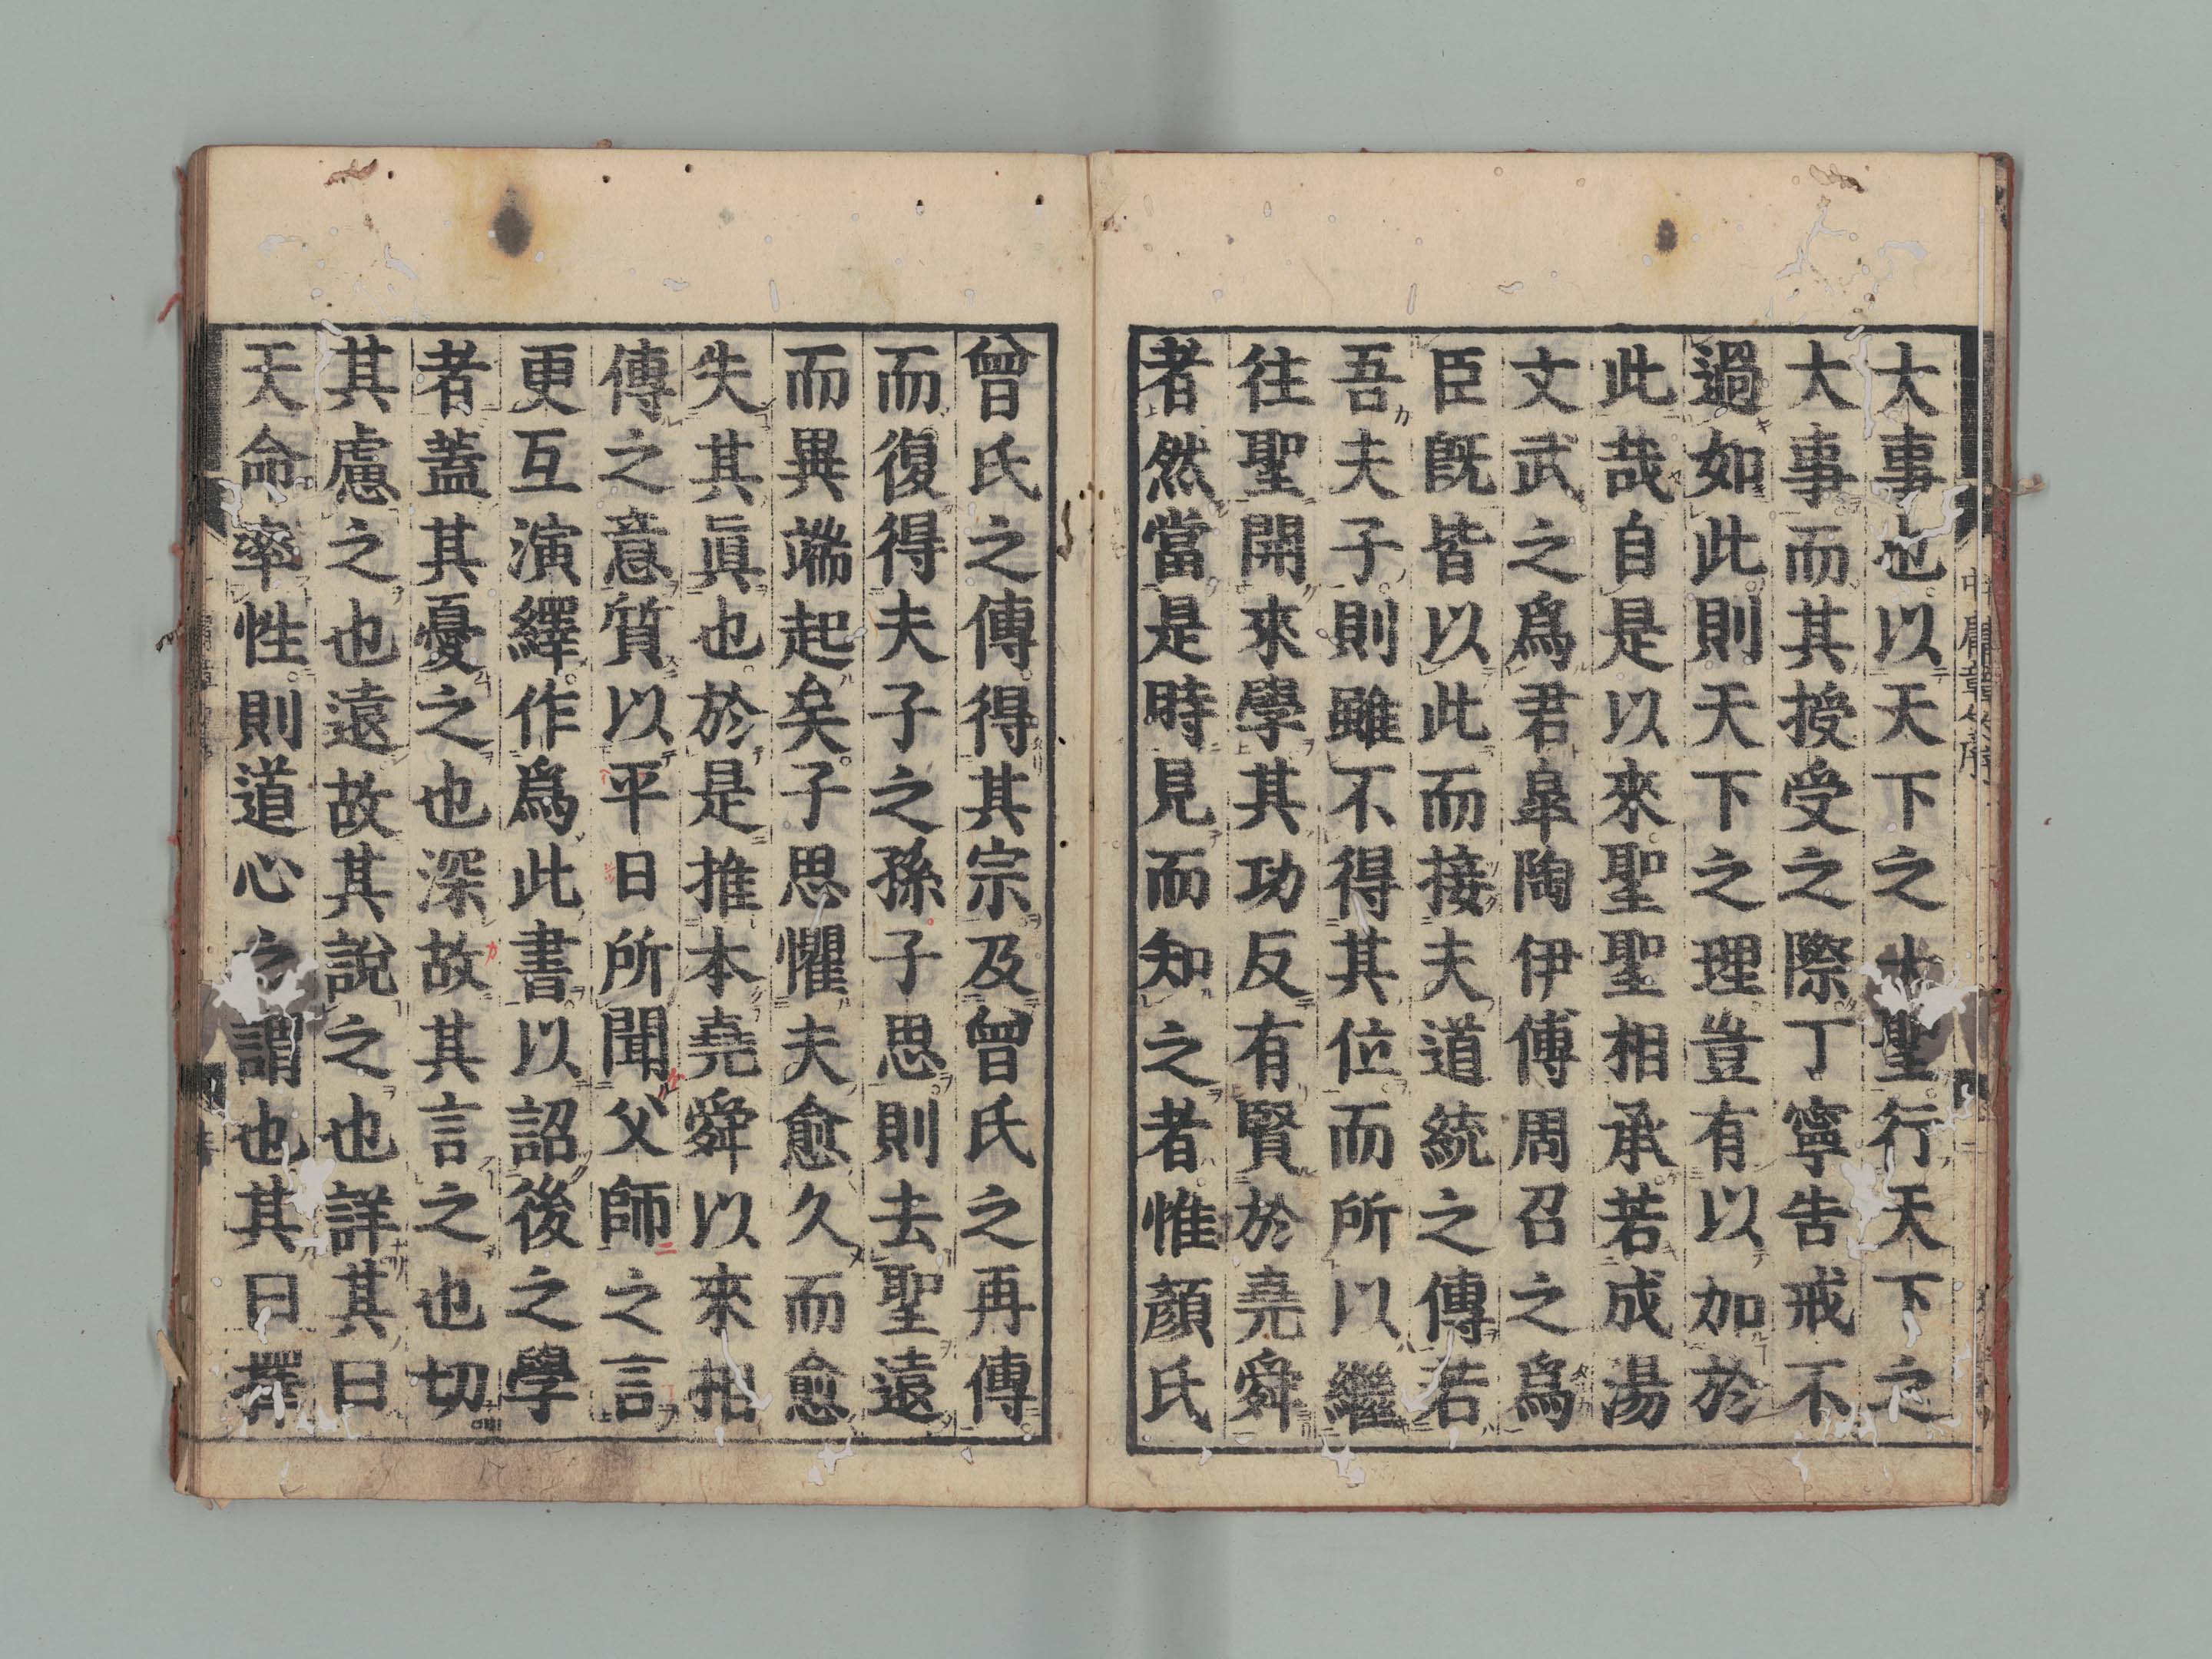 大事也以天下之大聖行天下之
大事而其授受之際丁寧告戒不
過如此則天下之理豈有以加於
此哉自是以來聖聖相承若成湯
文武之爲君皐陶伊傅周召之爲
臣既皆以此而接夫道統之傳若
吾夫子則雖不得其位而所以繼
往聖開來學其功反有賢於堯舜
者然當是時見而知之者惟顏氏
曾氏之傳得其宗及曾氏之再傳
而復得夫子之孫子思則去聖遠
而異端起矣子思懼夫愈久而愈
失其眞也於是推本堯舜以來相
傳之意質以平日所聞父師之言
更互演繹作爲此書以詔後之學
者蓋其憂之也深故其言之也切
其慮之也遠故其說之也詳其曰
天命率性則道心之謂也其曰擇